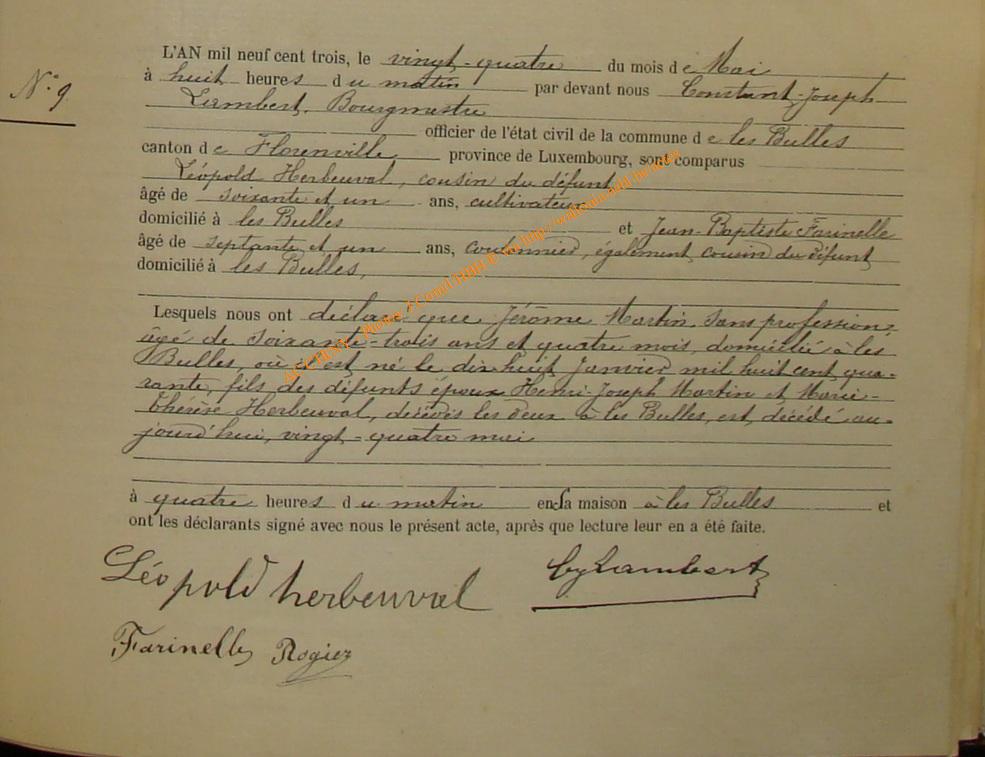 N° 9
L'AN mil neuf cent trois, le vingt-quatre du mois de Mai
à huit heures du matin par devant nous Constant-Joseph
Lambert, Bourgmestre
officier de l'état civil de la commune de les Bulles
canton de Florenville, province de Luxembourg, sont comparus
Léopold Herbeuval, cousin du défunt,
âgé de soixante et un ans, cultivateur
domicilié à les Bulles et Jean-Baptiste Farinelle
âgé de septante et un ans, cordonnier, également cousin du défunt,
domicilié à les Bulles,
Lesquels nous ont déclaré que Jérôme Martin, sans profession,
âgé de soixante-trois ans et quatre mois, domicilié à les
Bulles, où il est né le dix huit Janvier mil huit cent qua-
rante, fils des défunts époux Henri-Joseph Martin et Marie-
Thérèse Herbeuval, décédés les deux à les Bulles, est décédé au-
jourd'hui, vingt-quatre mai
à quatre heures du matin en sa maison à les Bulles et
ont les déclarants signé avec nous le présent acte, après que lecture leur en a été faite.
Léopold herbeuval
CJ Lambert
Farinelle Rogier